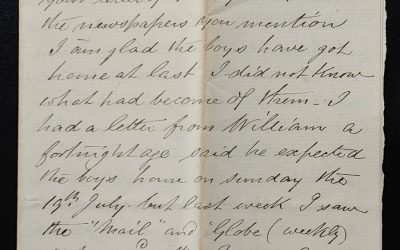 the newspapers you mention
I am glad the boys have got
home at last I did not know
what had become of them - I
had a letter from William a
fortnight ago said he expected
the boys home on sunday the
19th July but last week I saw
the "Mail" and "Globe (weekly)